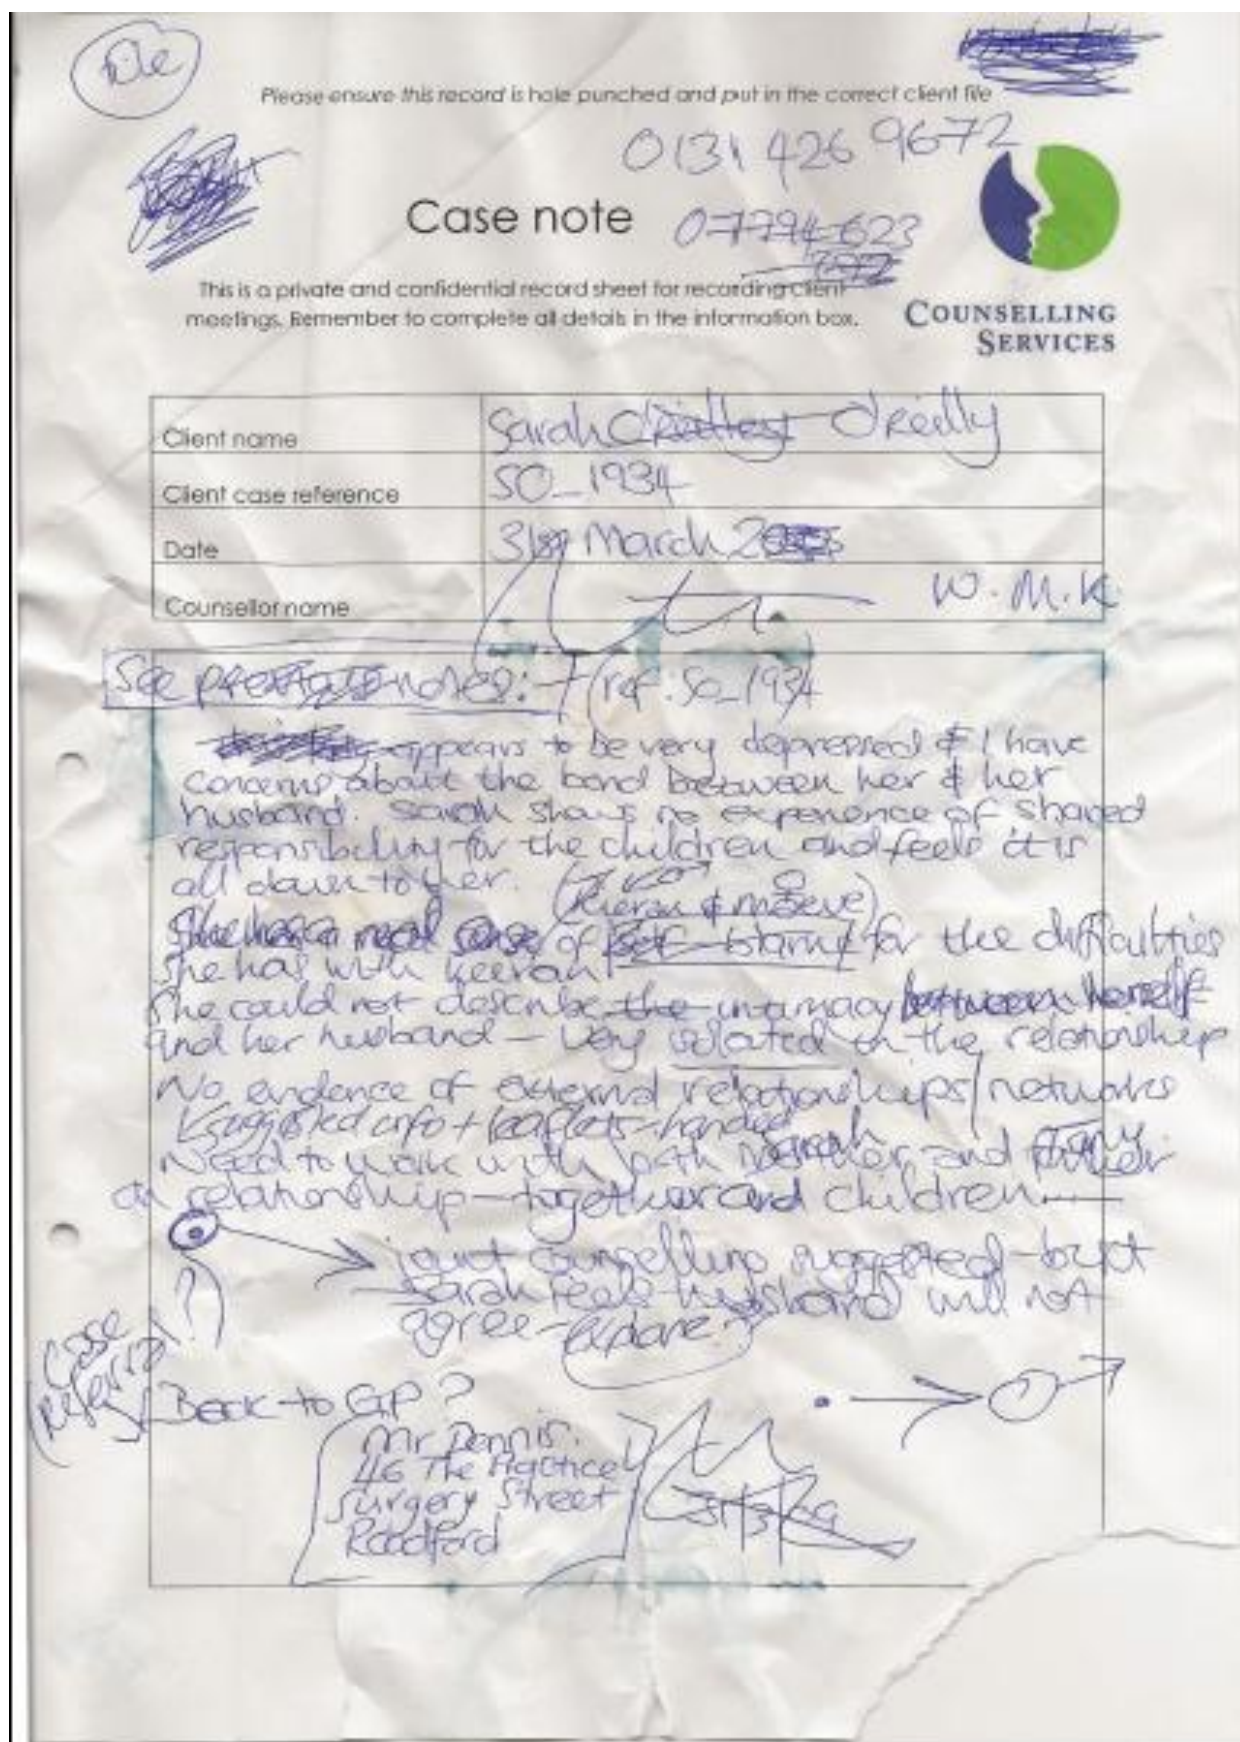 File
Please ensure this record is hole punched and put in the correct client file
0131 426 9672
Case note
07794 623
777
This is a private and confidential record sheet for recording client
meetings. Remember to complete all details in the information box.
COUNSELLING
SERVICES
Client name Sarah O'Reilly
Client case reference SO_1934
Date 31st March
Counsellor name W. M. K
See previous notes: (ref. SO_1934
appears to be very depressed & I have
concerns about the bond between her & her
husband. Sarah shows no experience of shared
responsibility for the children and feels it is
all down to her.
(Kieran & Maeve)
She has a real sense of self-blame for the difficulties
she has with Keeran
She could not describe the intimacy between herself
and her husband - very isolated in the relationship
No evidence of external relationships/networks
suggested info + leaflets - handed
Need to work with both mother and father
on relationship - together and children
joint counselling suggested - but
Sarah feels husband will not
agree - explore
?
Case
Referral
Back to GP?
Mr Dennis.
46 The Practice
Surgery Street
Roadford
31/3/09